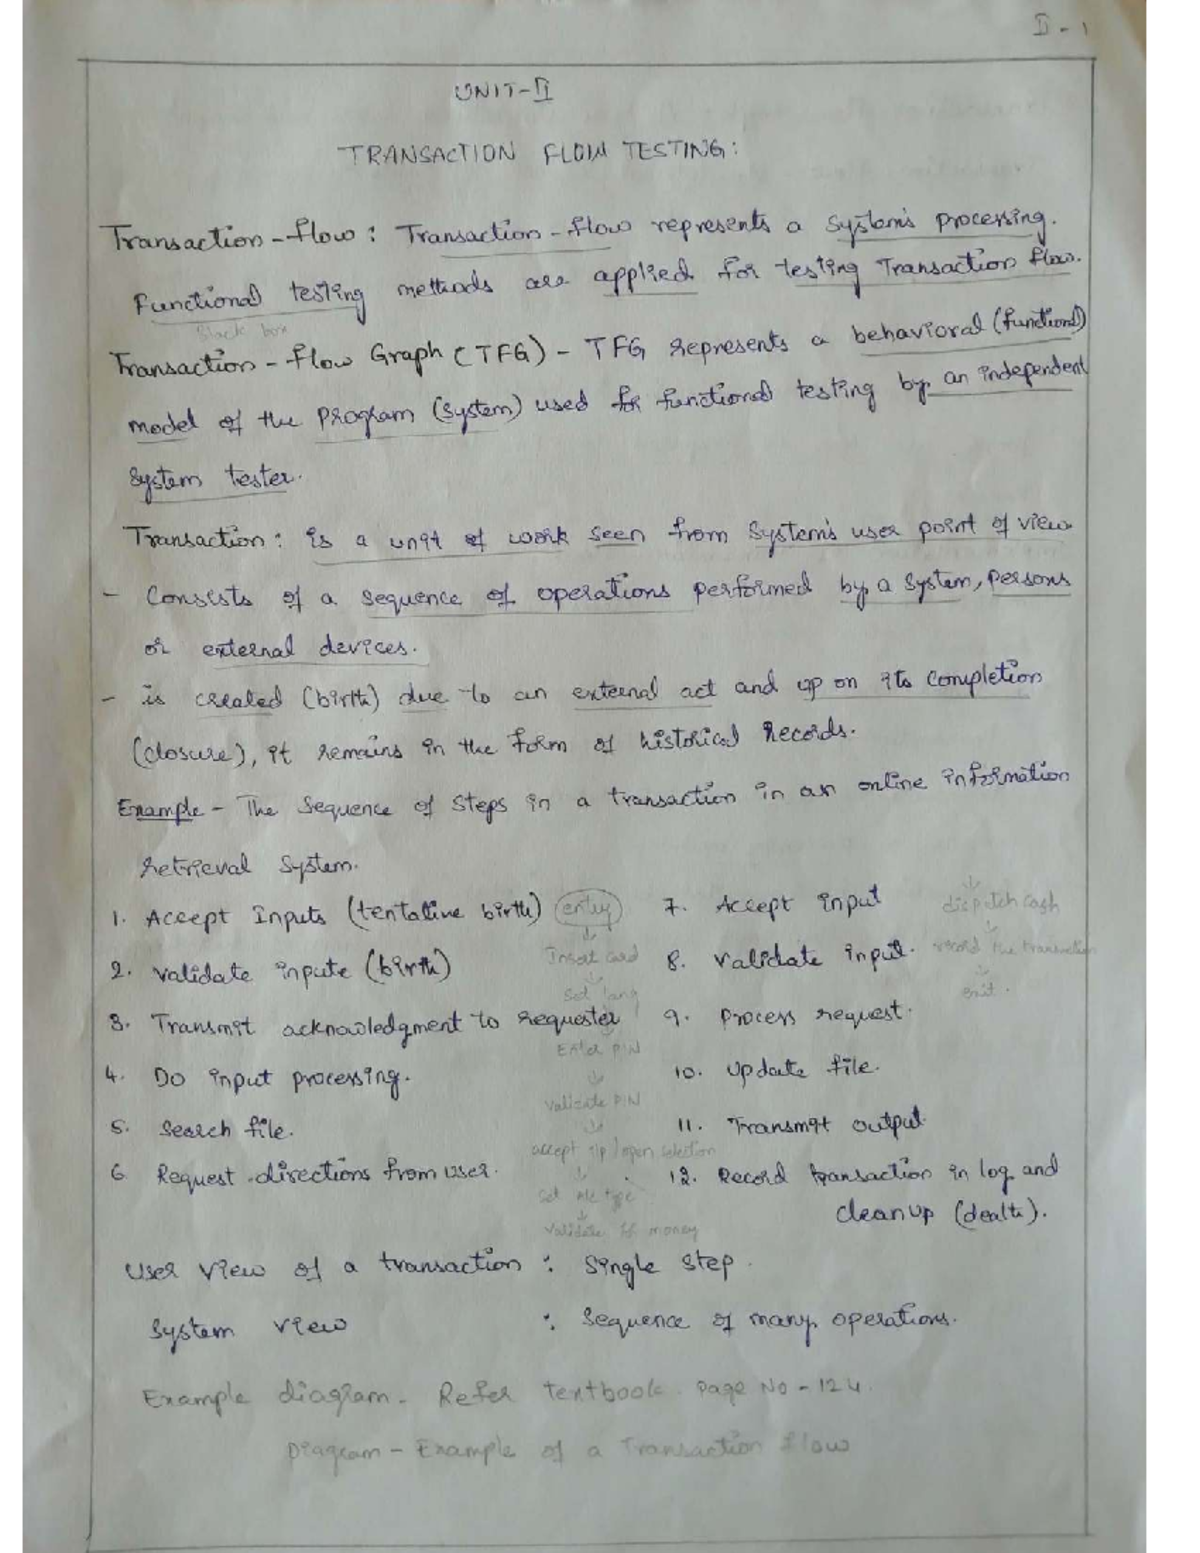 II - 1
UNIT-II
TRANSACTION FLOW TESTING:
Transaction-flow: Transaction-flow represents a system's processing.
Functional testing methods are applied for testing Transaction flow.
Black box
Transaction-flow Graph (TFG) - TFG represents a behavioral (functional)
model of the program (system) used for functional testing by an independent
system tester.
Transaction: is a unit of work seen from system's user point of view
- Consists of a sequence of operations performed by a system, persons
or external devices.
- is created (birth) due to an external act and up on its completion
(closure), it remains in the form of historical records.
Example - The sequence of steps in a transaction in an online information
retrieval system.
1. Accept Inputs (tentative birth)
2. validate inpute (birth)
3. Transmit acknowledgment to requester
4. Do input processing.
5. Search file.
6 Request directions from user.
entry
Insert card
Set lang
Enter PIN
Validate PIN
accept i/p / open selection
Set A/c type
Validate if money
7. Accept input
8. Validate input.
9. Process request.
10. Update file.
11. Transmit output
12. Record transaction in log and
cleanup (death).
dispatch cash
record the transaction
exit.
User view of a transaction : Single step.
System view : Sequence of many operations.
Example diagram - Refer textbook. page No - 124.
Diagram - Example of a Transaction flow